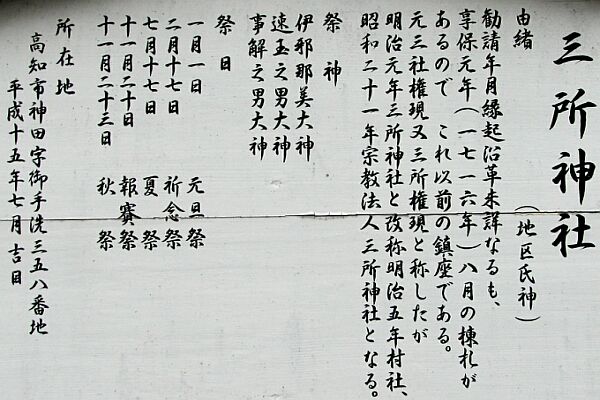 三所神社
(地区氏神)
由緒
勧請年月縁起沿革未詳なるも、
享保元年(一七一六年)八月の棟札が
あるので これ以前の鎮座である。
元三社権現又三所権現と称したが
明治元年三所神社と改称明治五年村社、
昭和二十一年宗教法人三所神社となる。
祭神
伊邪那美大神
速玉之男大神
事解之男大神
祭日
一月一日 元旦祭
二月十七日 祈念祭
七月十七日 夏祭
十一月二十日 報賽祭
十一月二十三日 秋祭
所在地
高知市神田字御手洗三五八番地
平成十五年七月吉日